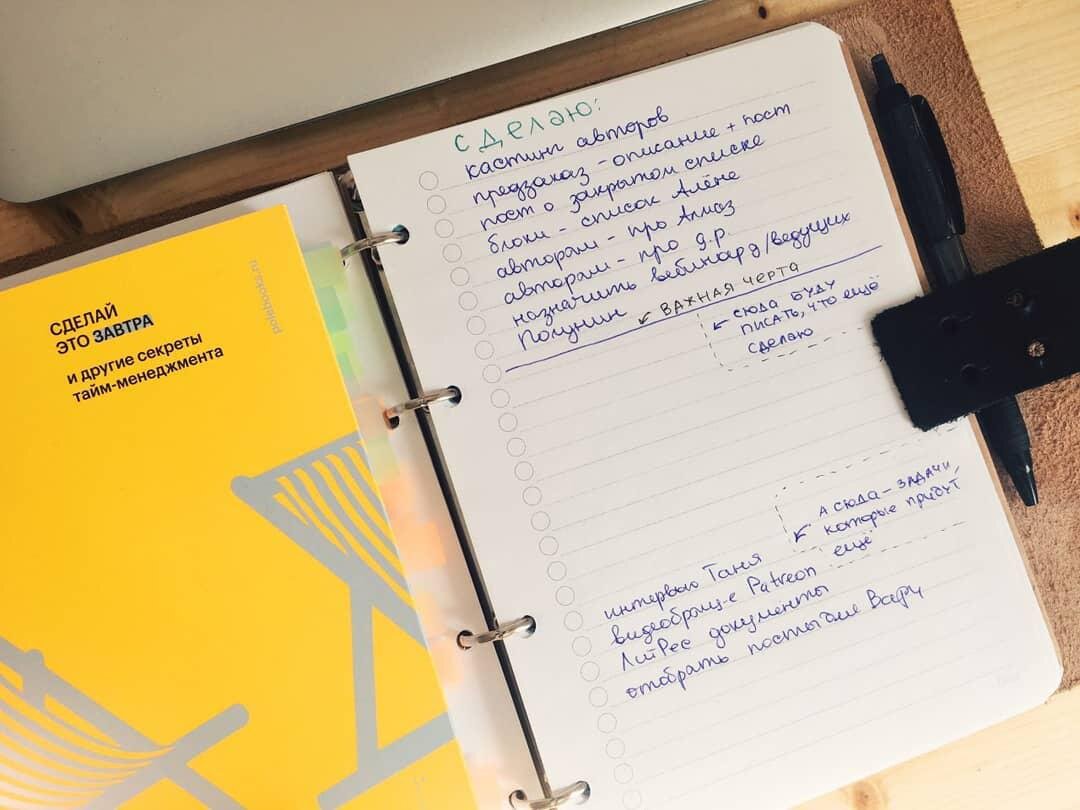 СДЕЛАЙ
ЭТО ЗАВТРА
и другие секреты
тайм-менеджмента
polebooks.ru
сделаю:
кастинг авторов
предзаказ – описание + пост
пост о закрытом списке
блоки – список Алёне
авторам – про Алмаз
авторам – про д.р.
назначить вебинар д/ведущих
Полунин ↙ ВАЖНАЯ ЧЕРТА
← СЮДА БУДУ
ПИСАТЬ, ЧТО ЕЩЁ
СДЕЛАЮ
А СЮДА – ЗАДАЧИ,
КОТОРЫЕ ПРИДУТ
ЕЩЁ
интервью Таня
видеобращ-е Patreon
ЛитРес документы
отобрать посты для Вари